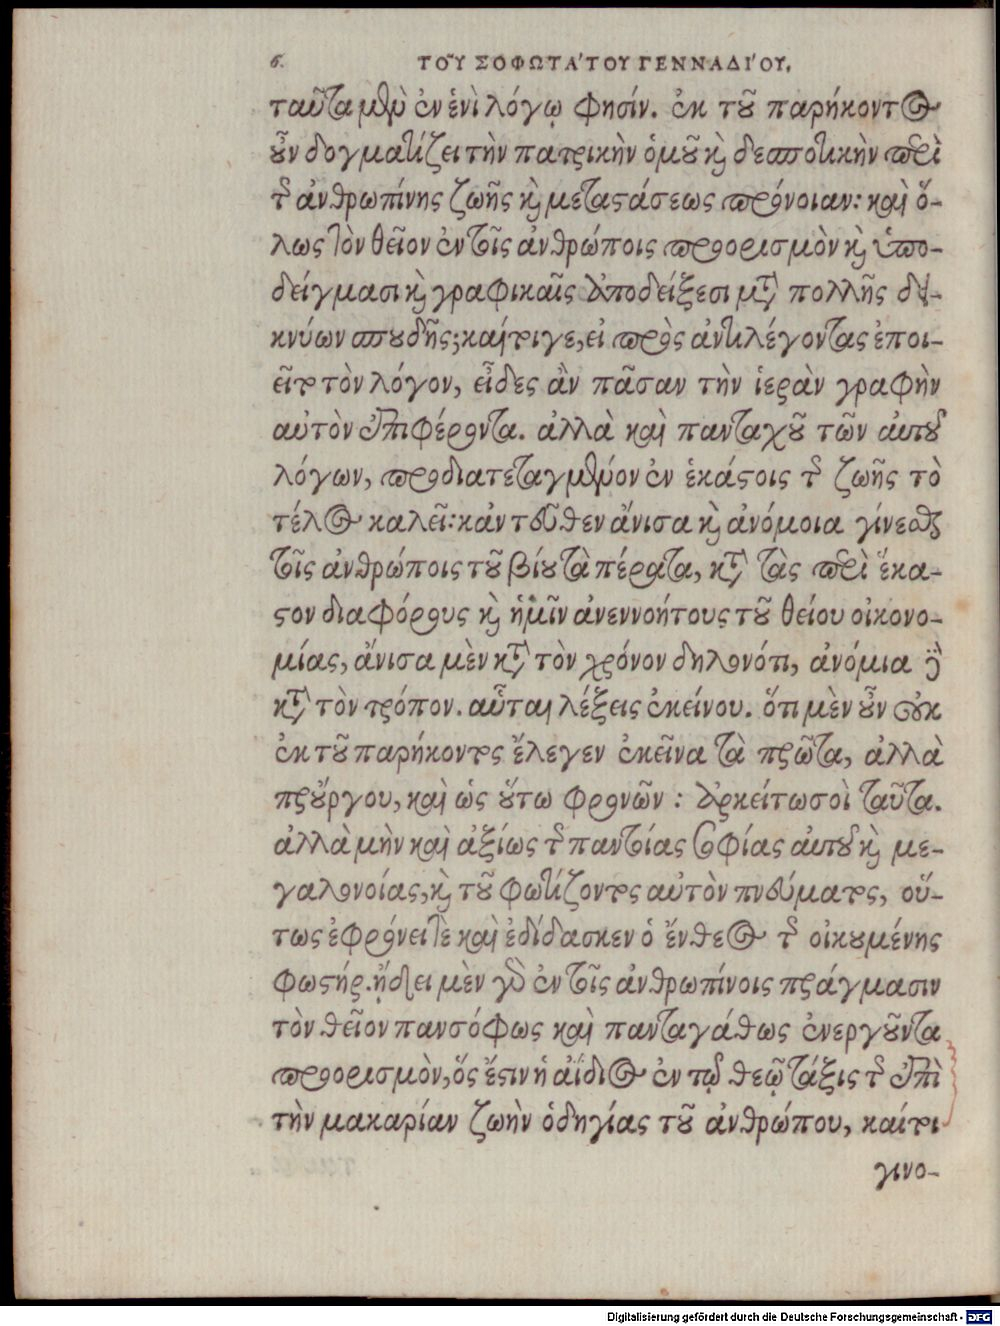 6. ΤΟΥ͂ ΣΟΦΩΤΑ´ΤΟΥ ΓΕΝΝΑΔΙ´ΟΥ.
ταῦτα μὲν ἐν ἑνὶ λόγῳ φησίν. ἐκ τοῦ παρήκοντος
οὖν δογματίζει τὴν πατρικὴν ὁμοῦ καὶ δεσποτικὴν περὶ
τῆς ἀνθρωπίνης ζωῆς καὶ μεταστάσεως πρόνοιαν: καὶ ὅ-
λως τὸν θεῖον ἐν τοῖς ἀνθρώποις προορισμὸν καὶ ὑπο-
δείγμασι καὶ γραφικαῖς ἀποδείξεσι μετὰ πολλῆς δει-
κνύων σπουδῆς; καίτοιγε, εἰ πρὸς ἀντιλέγοντας ἐποι-
εῖτο τὸν λόγον, εἶδες ἂν πᾶσαν τὴν ἱερὰν γραφὴν
αὐτὸν ἐπιφέροντα. ἀλλὰ καὶ πανταχοῦ τῶν αὐτοῦ
λόγων, προδιατεταγμένον ἐν ἑκάστοις τῆς ζωῆς τὸ
τέλος καλεῖ: κἀντεῦθεν ἄνισα καὶ ἀνόμοια γίνεσθαι
τοῖς ἀνθρώποις τοῦ βίου τὰ πέρατα, κατὰ τὰς περὶ ἕκα-
στον διαφόρους καὶ ἡμῖν ἀνεννοήτους τοῦ θείου οἰκονο-
μίας, ἄνισα μὲν κατὰ τὸν χρόνον δηλονότι, ἀνόμια δὲ
κατὰ τὸν τρόπον. αὗται λέξεις ἐκείνου. ὅτι μὲν οὖν οὐκ
ἐκ τοῦ παρήκοντος ἔλεγεν ἐκεῖνα τὰ πρῶτα, ἀλλὰ
προὔργου, καὶ ὡς οὕτω φρονῶν: ἀρκείτωσοὶ ταῦτα.
ἀλλὰ μὴν καὶ ἀξίως τῆς παντοίας σοφίας αὐτοῦ καὶ με-
γαλονοίας, καὶ τοῦ φωτίζοντος αὐτὸν πνεύματος, οὕ-
τως ἐφρόνει τε καὶ ἐδίδασκεν ὁ ἔνθεος τῆς οἰκουμένης
φωστήρ. ᾔδει μὲν γὰρ ἐν τοῖς ἀνθρωπίνοις πράγμασιν
τὸν θεῖον πανσόφως καὶ παναγάθως ἐνεργοῦντα
προορισμὸν, ὅς ἔστιν ἡ ἀΐδιος ἐν τῷ θεῷ τάξις τῆς ἐπὶ
τὴν μακαρίαν ζωὴν ὁδηγίας τοῦ ἀνθρώπου, καίτοι
γινο-
Digitalisierung gefördert durch die Deutsche Forschungsgemeinschaft - DFG